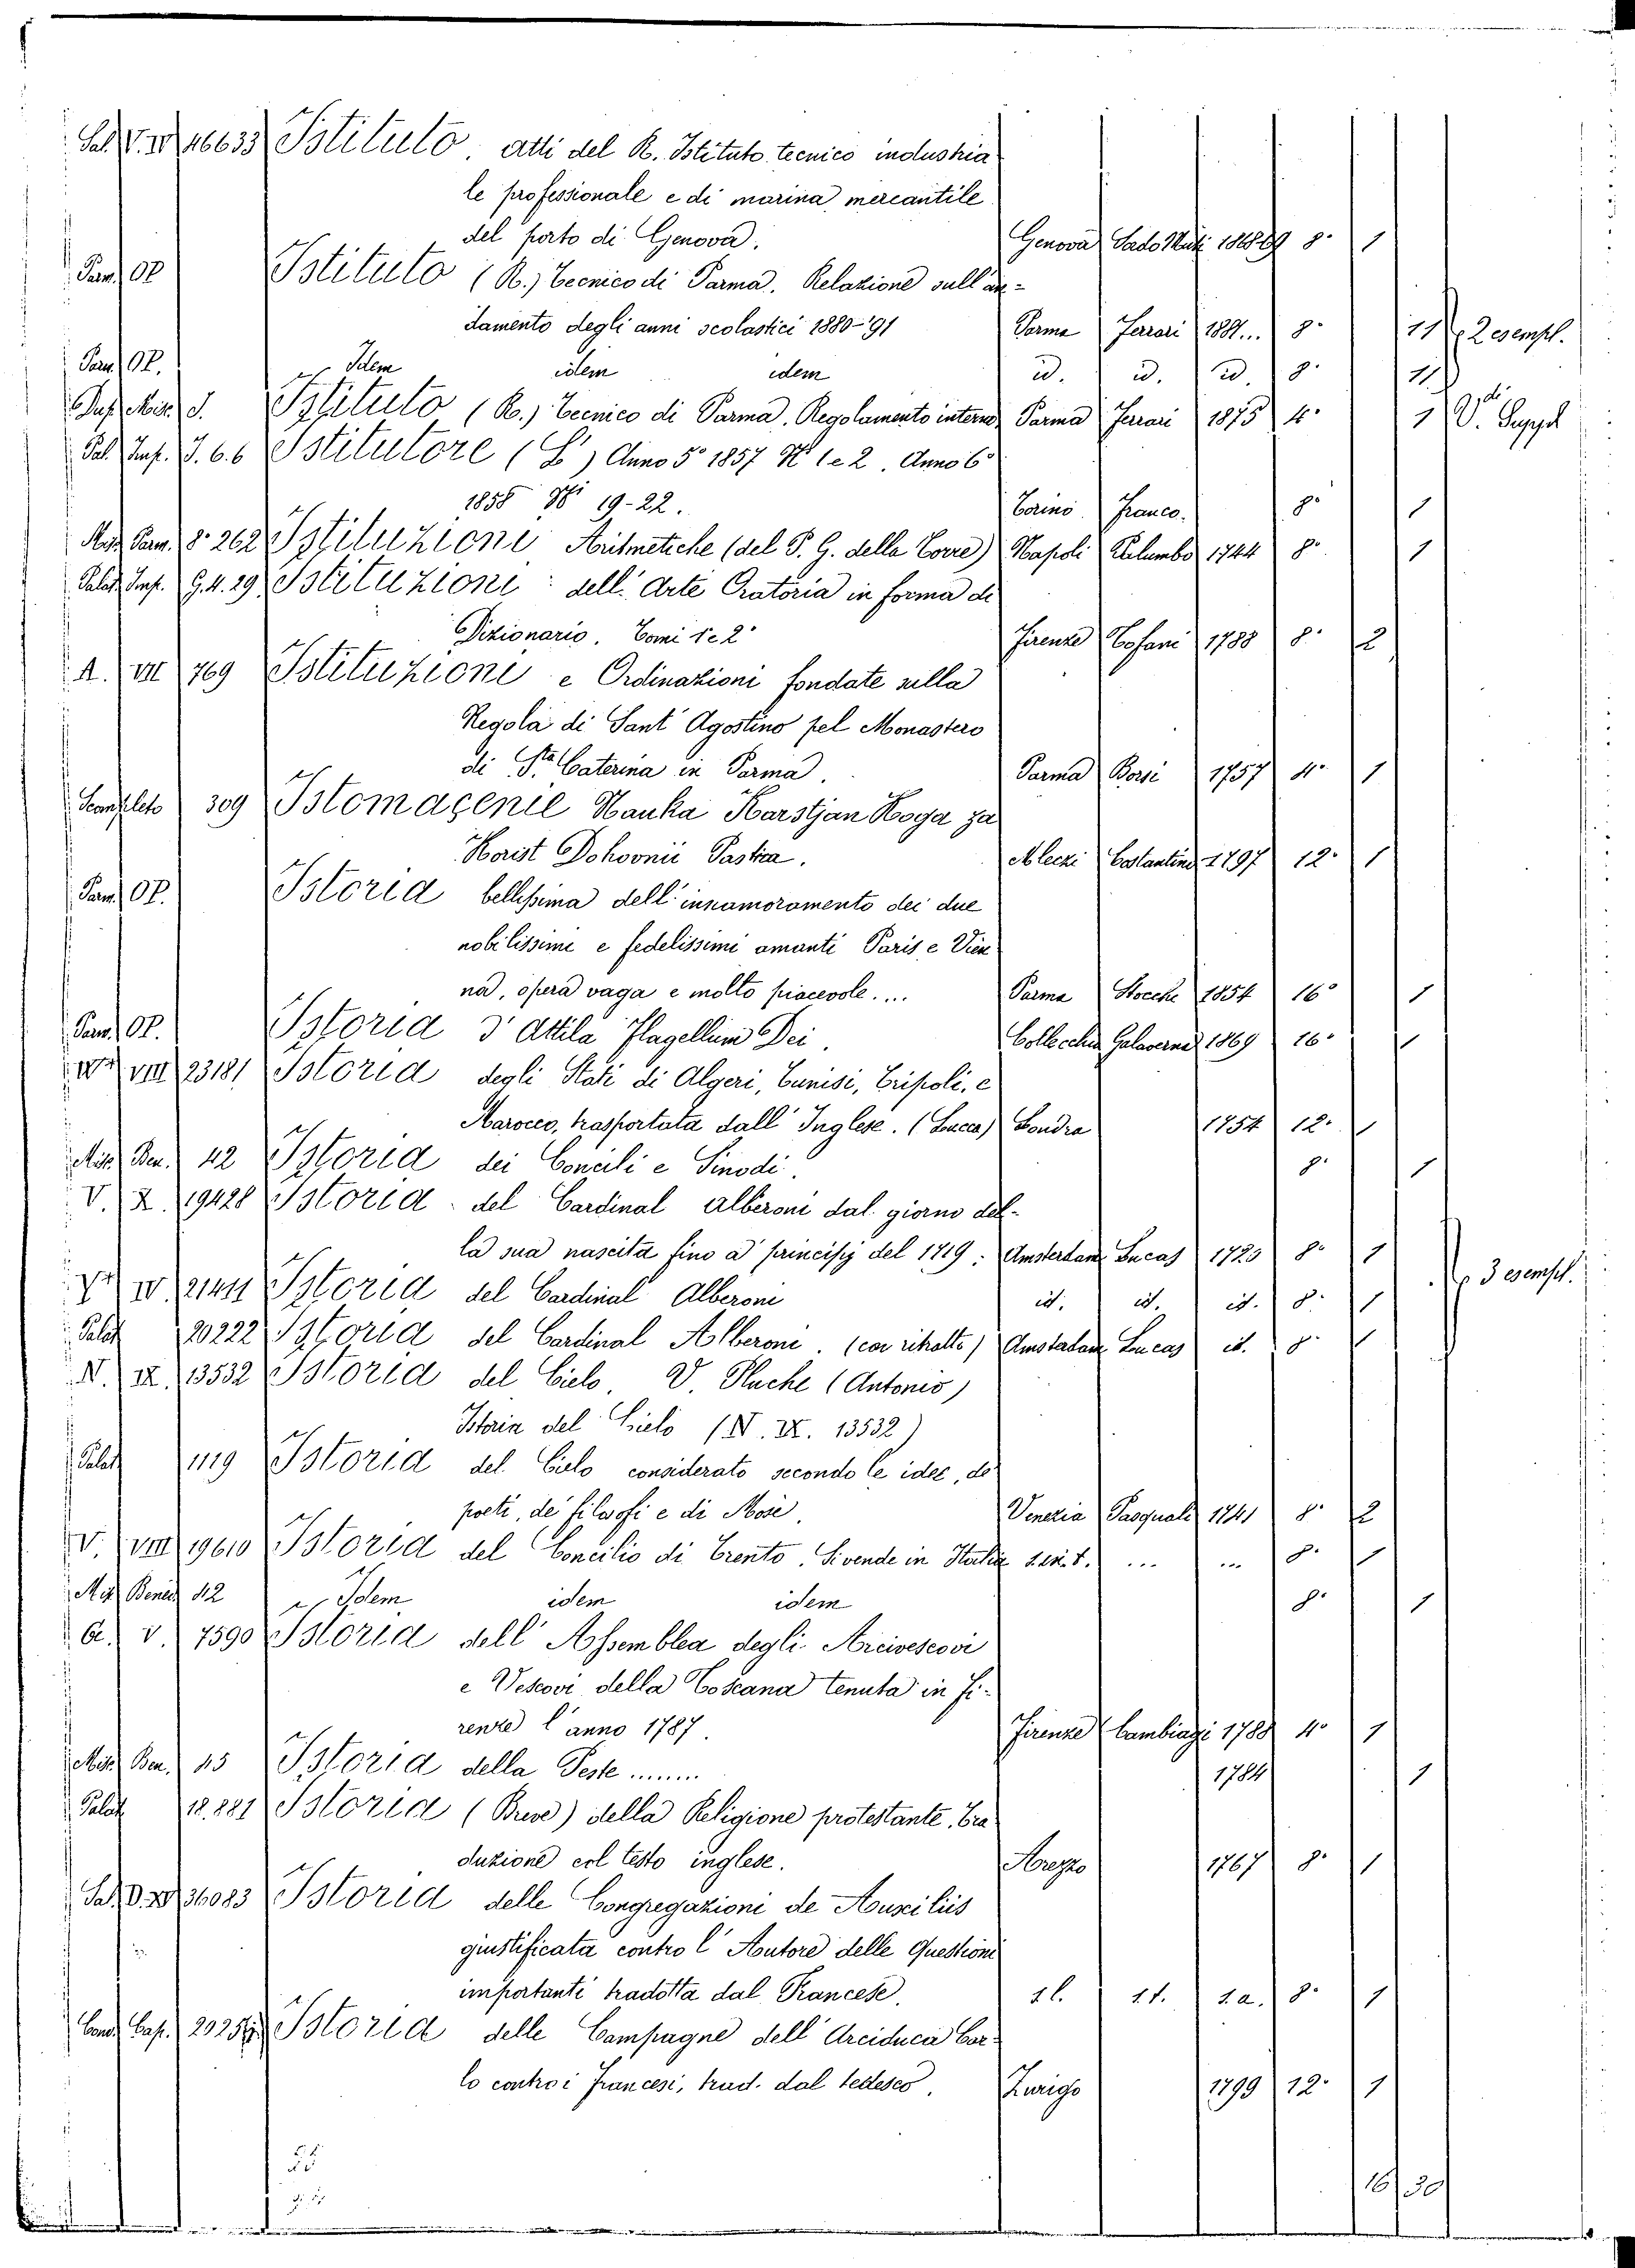 Sal. V. IV 16635 Istituto. atti del R. Istituto tecnico industria
le professionale e di marina mercantile
del porto di Genova. Genova Sordo Muti 1868 8° 1
Parm. OP. Istituto (R.) Tecnico di Parma. Relazione sull'an-
damento degli anni scolastici 1880-91 Parma Ferrari 1881... 8° 11 2 esempl.
Parm. OP. Idem idem idem id. id. id. 8° 11
Istituto (R.) Tecnico di Parma. Regolamento interno Parma Ferrari 1875 4° 1 Vdi Suppl
Pal. Inf. J. 6.6 Istitutore (L') Anno 5° 1857 N° 1 e 2. Anno 6°
1858 Ni 19-22. Torino Franco. 8° 1
Parm. 8° 262 Istituzioni Aritmetiche (del P. G. della Torre) Napoli Palumbo 1744 8° 1
Palat. Inf. G.4.29 Istituzioni dell' Arte Oratoria in forma di
Dizionario. Tomi 1 e 2° Firenze Tofani 1788 8° 2
A. VII 769 Istituzioni e Ordinazioni fondate sulla
Regola di Sant' Agostino pel Monastero
di Sta Caterina in Parma. Parma Borsi 1757 4° 1
309 Istomaçenie Nauka Karstjan Koga za
Korist Dohovnii Pastira. Mleczi Costantino 1797 12° 1
Parm. OP. Istoria bellissima dell' innamoramento dei due
nobilissimi e fedelissimi amanti Paris e Vien
na, opera vaga e molto piacevole.... Parma Stocchi 1854 16° 1
Parm. OP. Istoria d' Attila Flagellum Dei. Collecchio Galaverna 1869 16° 1
VIII 23181 Istoria degli Stati di Algeri, Tunisi, Tripoli, e
Marocco, trasportata dall' Inglese. (Lucca) Londra 1754 12° 1
Misc. Ben. 42 Istoria dei Concili e Sinodi. 8° 1
V. X. 19428 Istoria del Cardinal Alberoni dal giorno del-
la sua nascita fino a' principj del 1719. Amsterdam Lucas 1720 8° 1
IV 21411 Istoria del Cardinal Alberoni id. id. id. 8° 1 3 esempl.
Palat 20222 Istoria del Cardinal Alberoni. (con ritratto) Amsterdam Lucas id. 8° 1
N. IX. 13532 Istoria del Cielo. V. Pluche (Antonio)
Istoria del Cielo (N. IX. 13532)
Palat 1119 Istoria del Cielo considerato secondo le idee, de'
poeti, de' filosofi e di Mosè. Venezia Pasquali 1741 8° 2
V. VIII 19610 Istoria del Concilio di Trento. Si vende in Italia s.n.t. ... ... 8° 1
Misc Bened 42 Idem idem idem 8° 1
G. V. 7590 Istoria dell' Assemblea degli Arcivescovi
e Vescovi della Toscana tenuta in Fi-
renze l'anno 1787. Firenze Cambiagi 1788 4° 1
Misc. Ben. 45 Istoria della Peste........ 1784 1
Palat 18.881 Istoria (Breve) della Religione protestante. Tra
duzione col testo inglese. Arezzo 1767 8° 1
Sal. D. 36083 Istoria delle Congregazioni de Auxiliis
giustificata contro l' Autore delle Questioni
importanti tradotta dal Francese. s.l. s.t. s.a. 8° 1
Cap. 20256 Istoria delle Campagne dell' Arciduca Car-
lo contro i Francesi, trad. dal tedesco. Zurigo 1799 12° 1
16 30